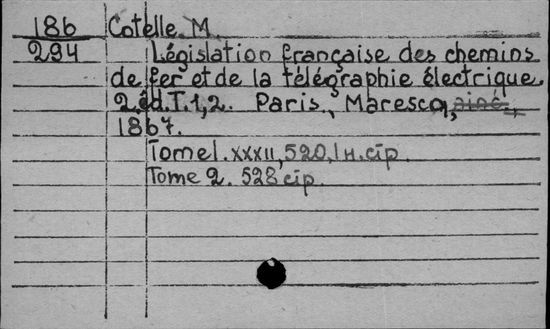 186 Cotelle M.
294 Législation française des chemins
de fer et de la télégraphie électrique.
2 éd. T. 1, 2. Paris, Marescq, ainé.,
1867.
Tome 1. XXXII, 520, 1 н. стр.
Tome 2. 528 стр.